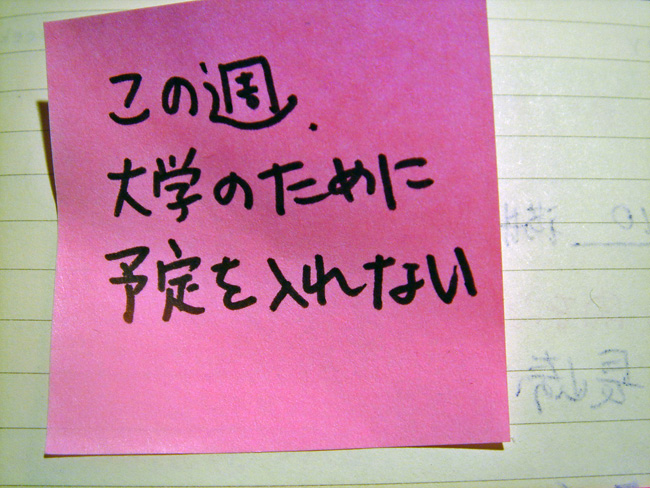 この週.
大学のために
予定を入れない